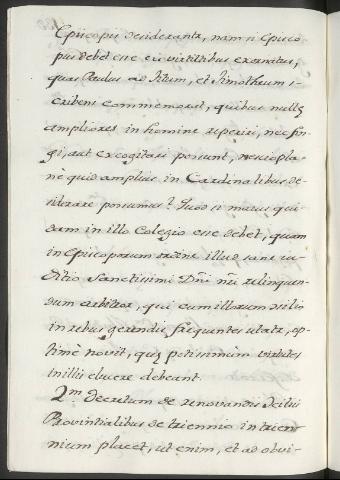 Episcopis desiderantr, nam si Episco
pus debet esse eis virtutibus exornatus,
quas Paulus ad Titum, et Timotheum s-
cribens commemorat, quibus nullę
ampliores in homine reperiri, nec fin-
gi, aut excogitari possunt, nescio pla-
nè quid amplius in Cardinalibus de-
siderare possumus? Quod si maius qui-
dam in illo Colegio esse debet, quam
in Episcoporum ratione illud sane iu-
ditio Sanctissimi Dñi nri relinquen-
dum arbitror, qui cum illorum
in rebus gerendis frequentes utatr, op-
timè novit, quę potissimùm virtutes
in illis elucere debeant.
Qm. decretum de renovandis
Provintialibus de triennio in trien-
nium placet, ut enim, et ad obvi-